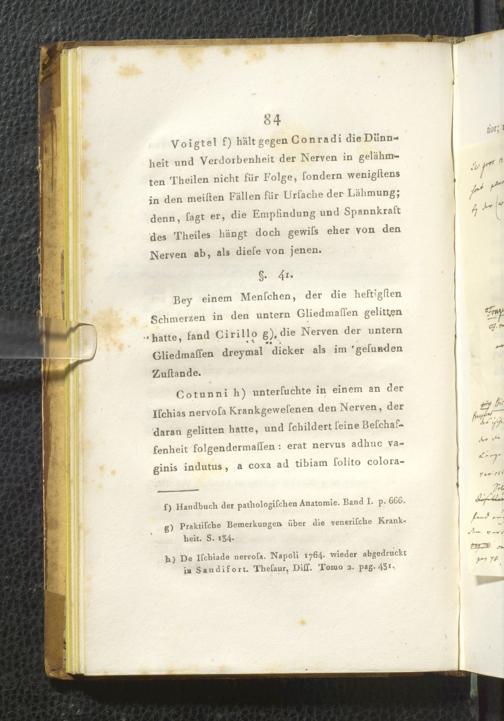 84
Voigtel f) hält gegen Conradi die Dünn-
heit und Verdorbenheit der Nerven in gelähm-
ten Theilen nicht für Folge, ſondern wenigſtens
in den meiſten Fällen für Urſache der Lähmung;
denn, ſagt er, die Empfindung und Spannkraft
des Theiles hängt doch gewiſs eher von den
Nerven ab, als dieſe von jenen.
§. 41.
Bey einem Menſchen, der die heftigſten
Schmerzen in den untern Gliedmaſſen gelitten
hatte, fand Cirillo g), die Nerven der untern
Gliedmaſſen dreymal dicker als im geſunden
Zuſtande.
Cotunni h) unterſuchte in einem an der
Iſchias nervoſa Krankgeweſenen den Nerven, der
daran gelitten hatte, und ſchildert ſeine Beſchaf-
fenheit folgendermaſſen: erat nervus adhuc va-
ginis indutus, a coxa ad tibiam ſolito colora-
f) Handbuch der pathologiſchen Anatomie. Band I. p. 666.
g) Praktiſche Bemerkungen über die veneriſche Krank-
heit. S. 134.
h) De Iſchiade nervoſa. Napoli 1764. wieder abgedruckt
in Sandifort. Theſaur, Diſſ. Tomo 2. pag. 451.